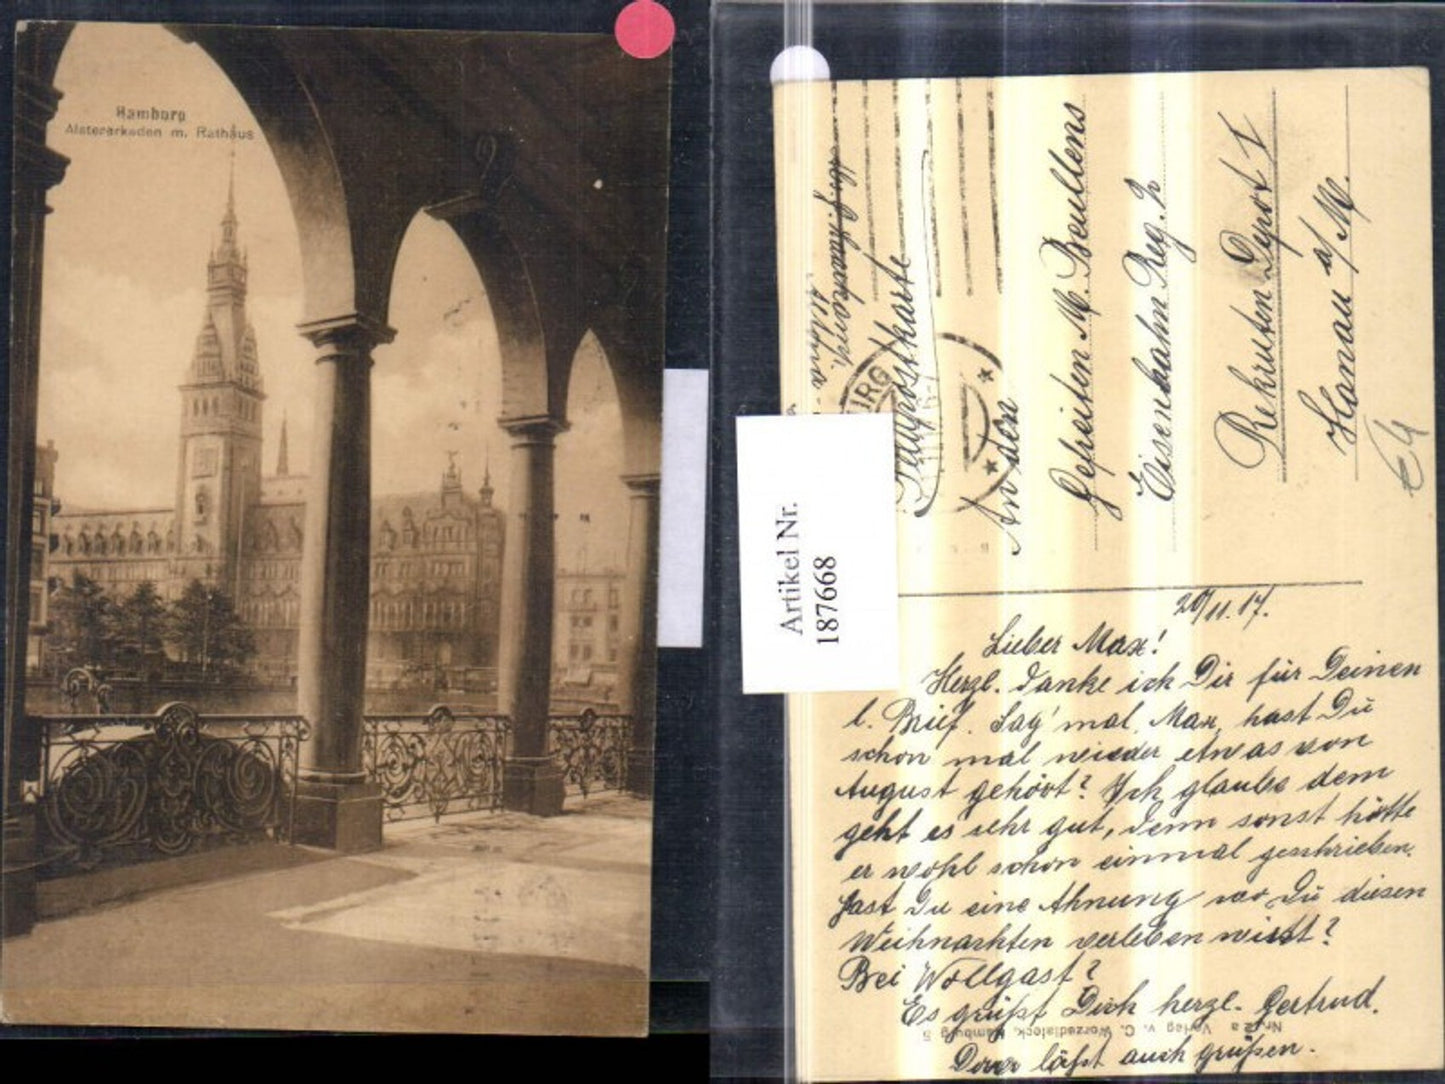 Hamburg
Alsterarkaden m. Rathaus
Artikel Nr.
187668
Feldpostkarte
An den
Gefreiten M. Beullens
Eisenbahn Reg. 2
Rekruten Depot I
Hanau a/M.
20/11.17.
Lieber Max!
Herzl. Danke ich Dir für Deinen
l. Brief. Sag' mal, Max, hast Du
schon mal wieder etwas von
August gehört? Ich glaube dem
geht es sehr gut, denn sonst hätte
er wohl schon einmal geschrieben.
Hast Du eine Ahnung wo Du diesen
Weihnachten verleben wirst?
Bei Wollgast?
Es grüßt Dich herzl. Gertrud.
läßt auch grüßen.
Nr. 12 a Verlag v. C. Worzedialeck, Hamburg 5